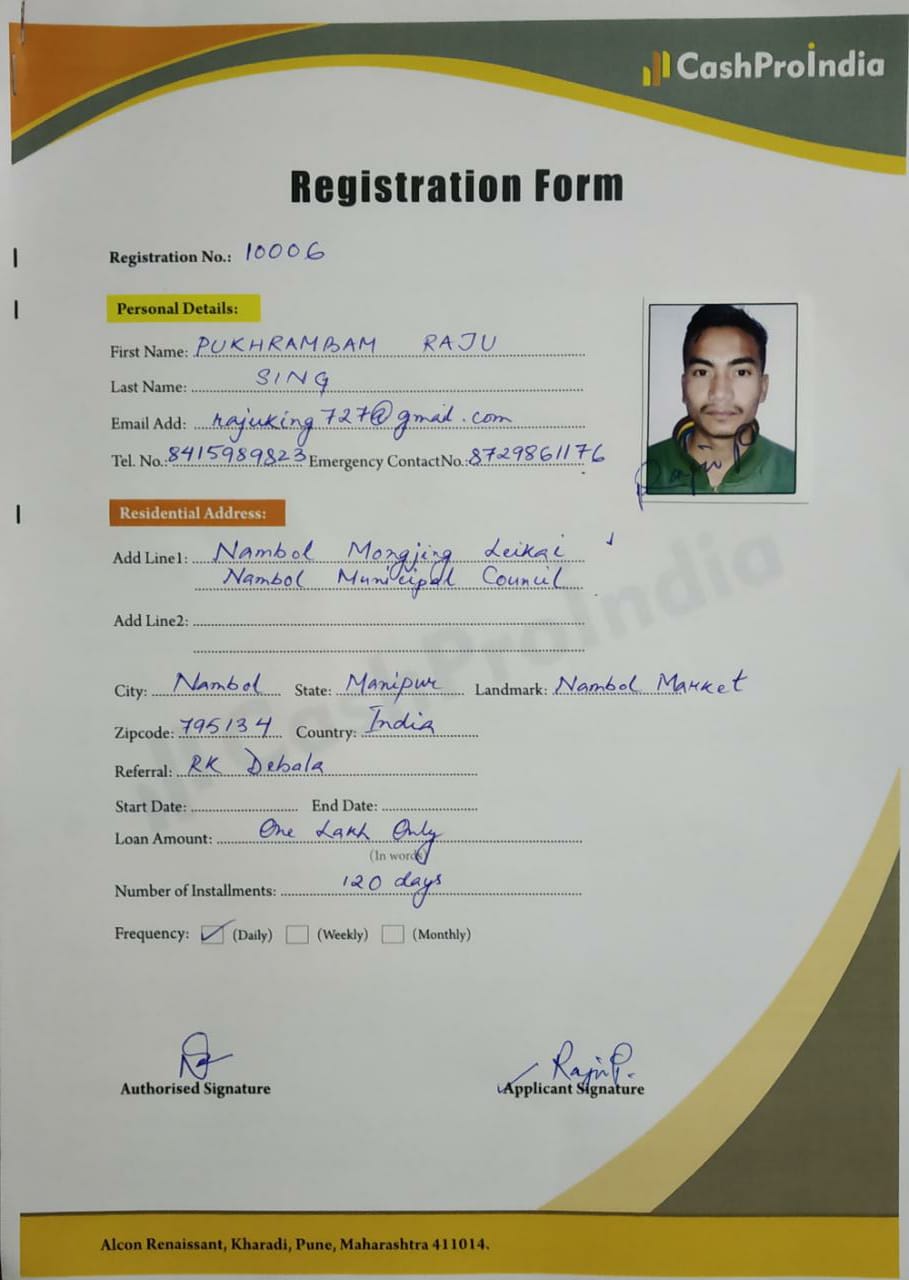 CashProIndia
Registration Form
Registration No.: 10006
Personal Details:
First Name: PUKHRAMBAM RAJU
Last Name: SING
Email Add: rajuking727@gmail.com
Tel. No.: 8415989823 Emergency ContactNo.: 8729861176
Raju P
Residential Address:
Add Line1: Nambol Mongjing Leikai
Nambol Municipal Council
Add Line2:
CashProIndia
City: Nambol State: Manipur Landmark: Nambol Market
Zipcode: 795134 Country: India
Referral: RK Debala
Start Date: End Date:
Loan Amount: One Lakh Only
(In words)
Number of Installments: 120 days
Frequency: (Daily) (Weekly) (Monthly)
Raju P.
Authorised Signature Applicant Signature
Alcon Renaissant, Kharadi, Pune, Maharashtra 411014.